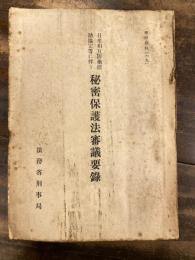 日米相互防衛援
助協定等に伴う
秘密保護法審議要録
法務省刑事局